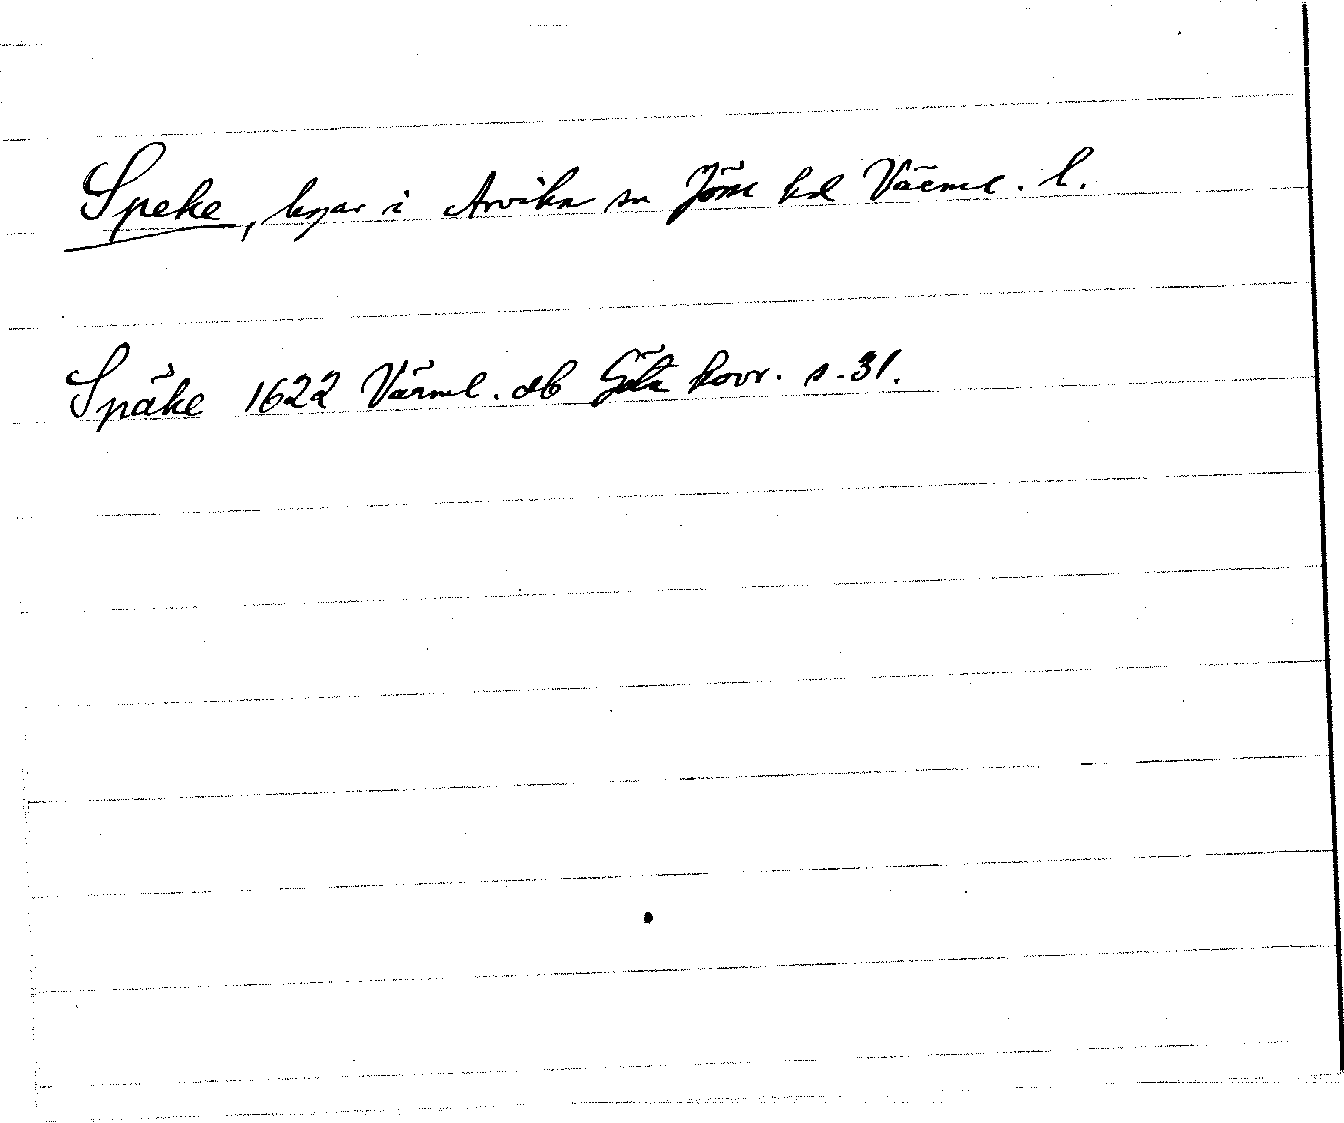 Speke, byar i Arvika sn Jösse hd Värml. l.
Späke 1622 Värml. db Göta hovr. s. 31.